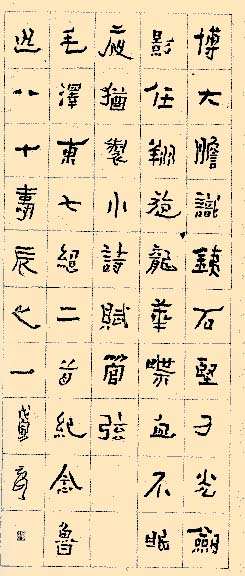 博大膽識銕石堅刀光劍
影任翔旋龍華喋血不眠
夜猶製小詩賦管弦
毛澤東七絕二首紀念魯
迅八十壽辰之一 戊寅